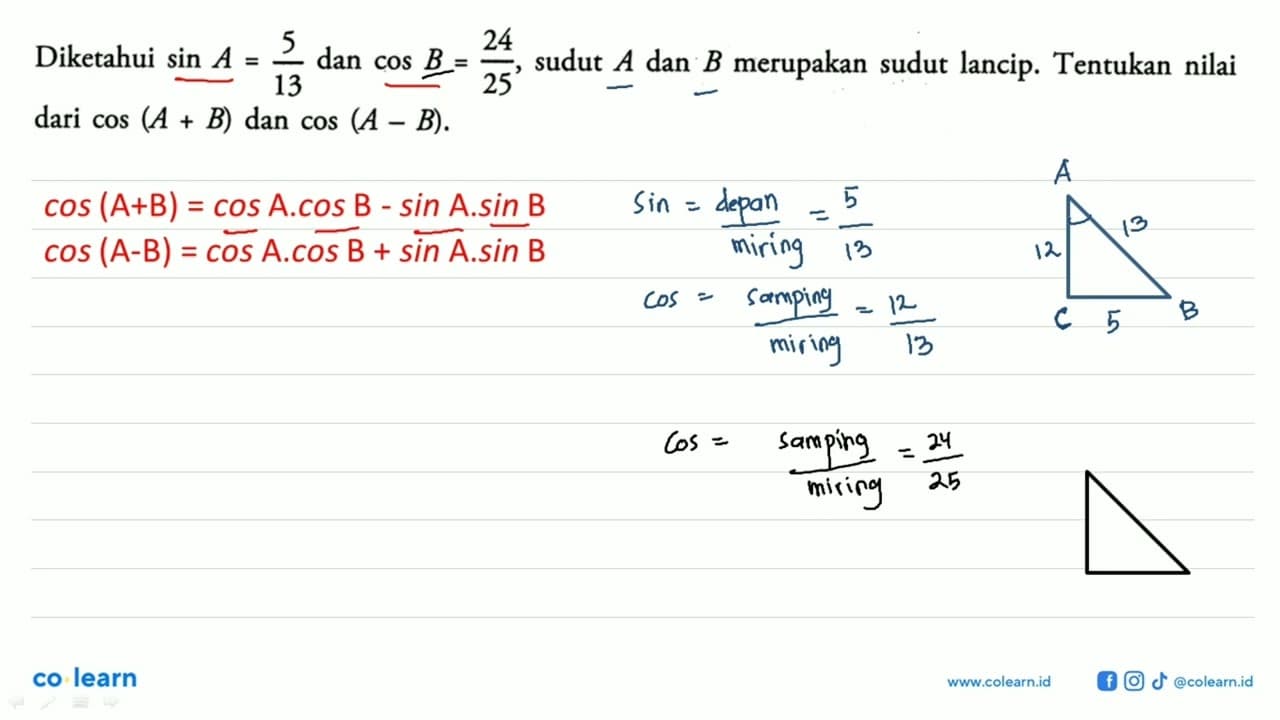 Diketahui sin A = 5/13 dan cos B = 24/25, sudut A dan B merupakan sudut lancip. Tentukan nilai
dari cos (A + B) dan cos (A – B).
cos (A+B) = cos A.cos B - sin A.sin B
cos (A-B) = cos A.cos B + sin A.sin B
Sin = depan/miring = 5/13
Cos = samping/miring = 12/13
A
12
13
C
5
B
Cos = samping/miring = 24/25
co learn
www.colearn.id
@colearn.id